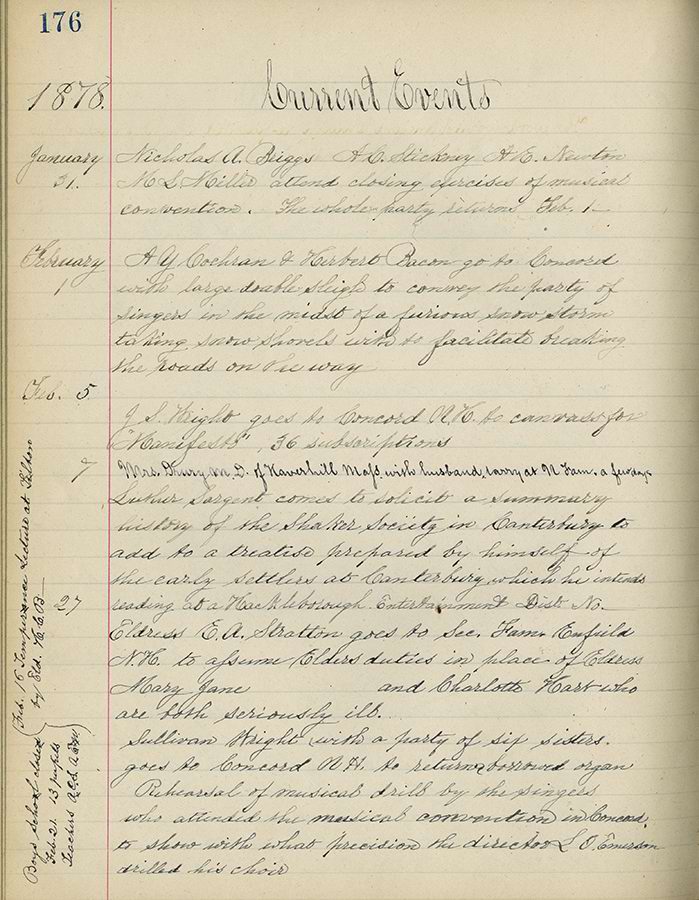 176
1878.
Current Events
January
31.
Nicholas A. Briggs A.C. Stickney A.E. Newton
M L Miller attend closing exercises of musical
convention. The whole party returns Feb. 1—
February
1
A Y Cochran & Herbert Bacon go to Concord
with large double sleigh to convey the party of
singers in the midst of a furious snow storm
taking snow shovels with to facilitate breaking
the roads on the way
Feb. 5
J. S. Wright goes to Concord N.H. to canvass for
"Manifesto", 36 subscriptions
7
Mrs. Drury M. D. of Haverhill Mass. with husband, tarry at N. Fam. a few days
Luther Sargent comes to solicit a summary
history of the Shaker Society in Canterbury to
add to a treatise prepared by himself of
the early settlers at Canterbury which he intends
reading at a Hackleborough Entertainment Dist. No.
27
Eldress E. A. Stratton goes to Sec. Fam. Enfield
N.H. to assume Elders duties in place of Eldress
Mary Jane and Charlotte Hart who
are both seriously ill.
Sullivan Wright with a party of six sisters.
goes to Concord N.H. to return borrowed organ
Rehersal of musical drill by the singers
who attended the musical convention in Concord,
to show with what precision the director L. O. Emerson
drilled his choir
Feb. 16 Temperance Lecture at Tilton
by Eld. H. C. B.
Boys School closes
Feb. 21. 13 pupils
Teachers